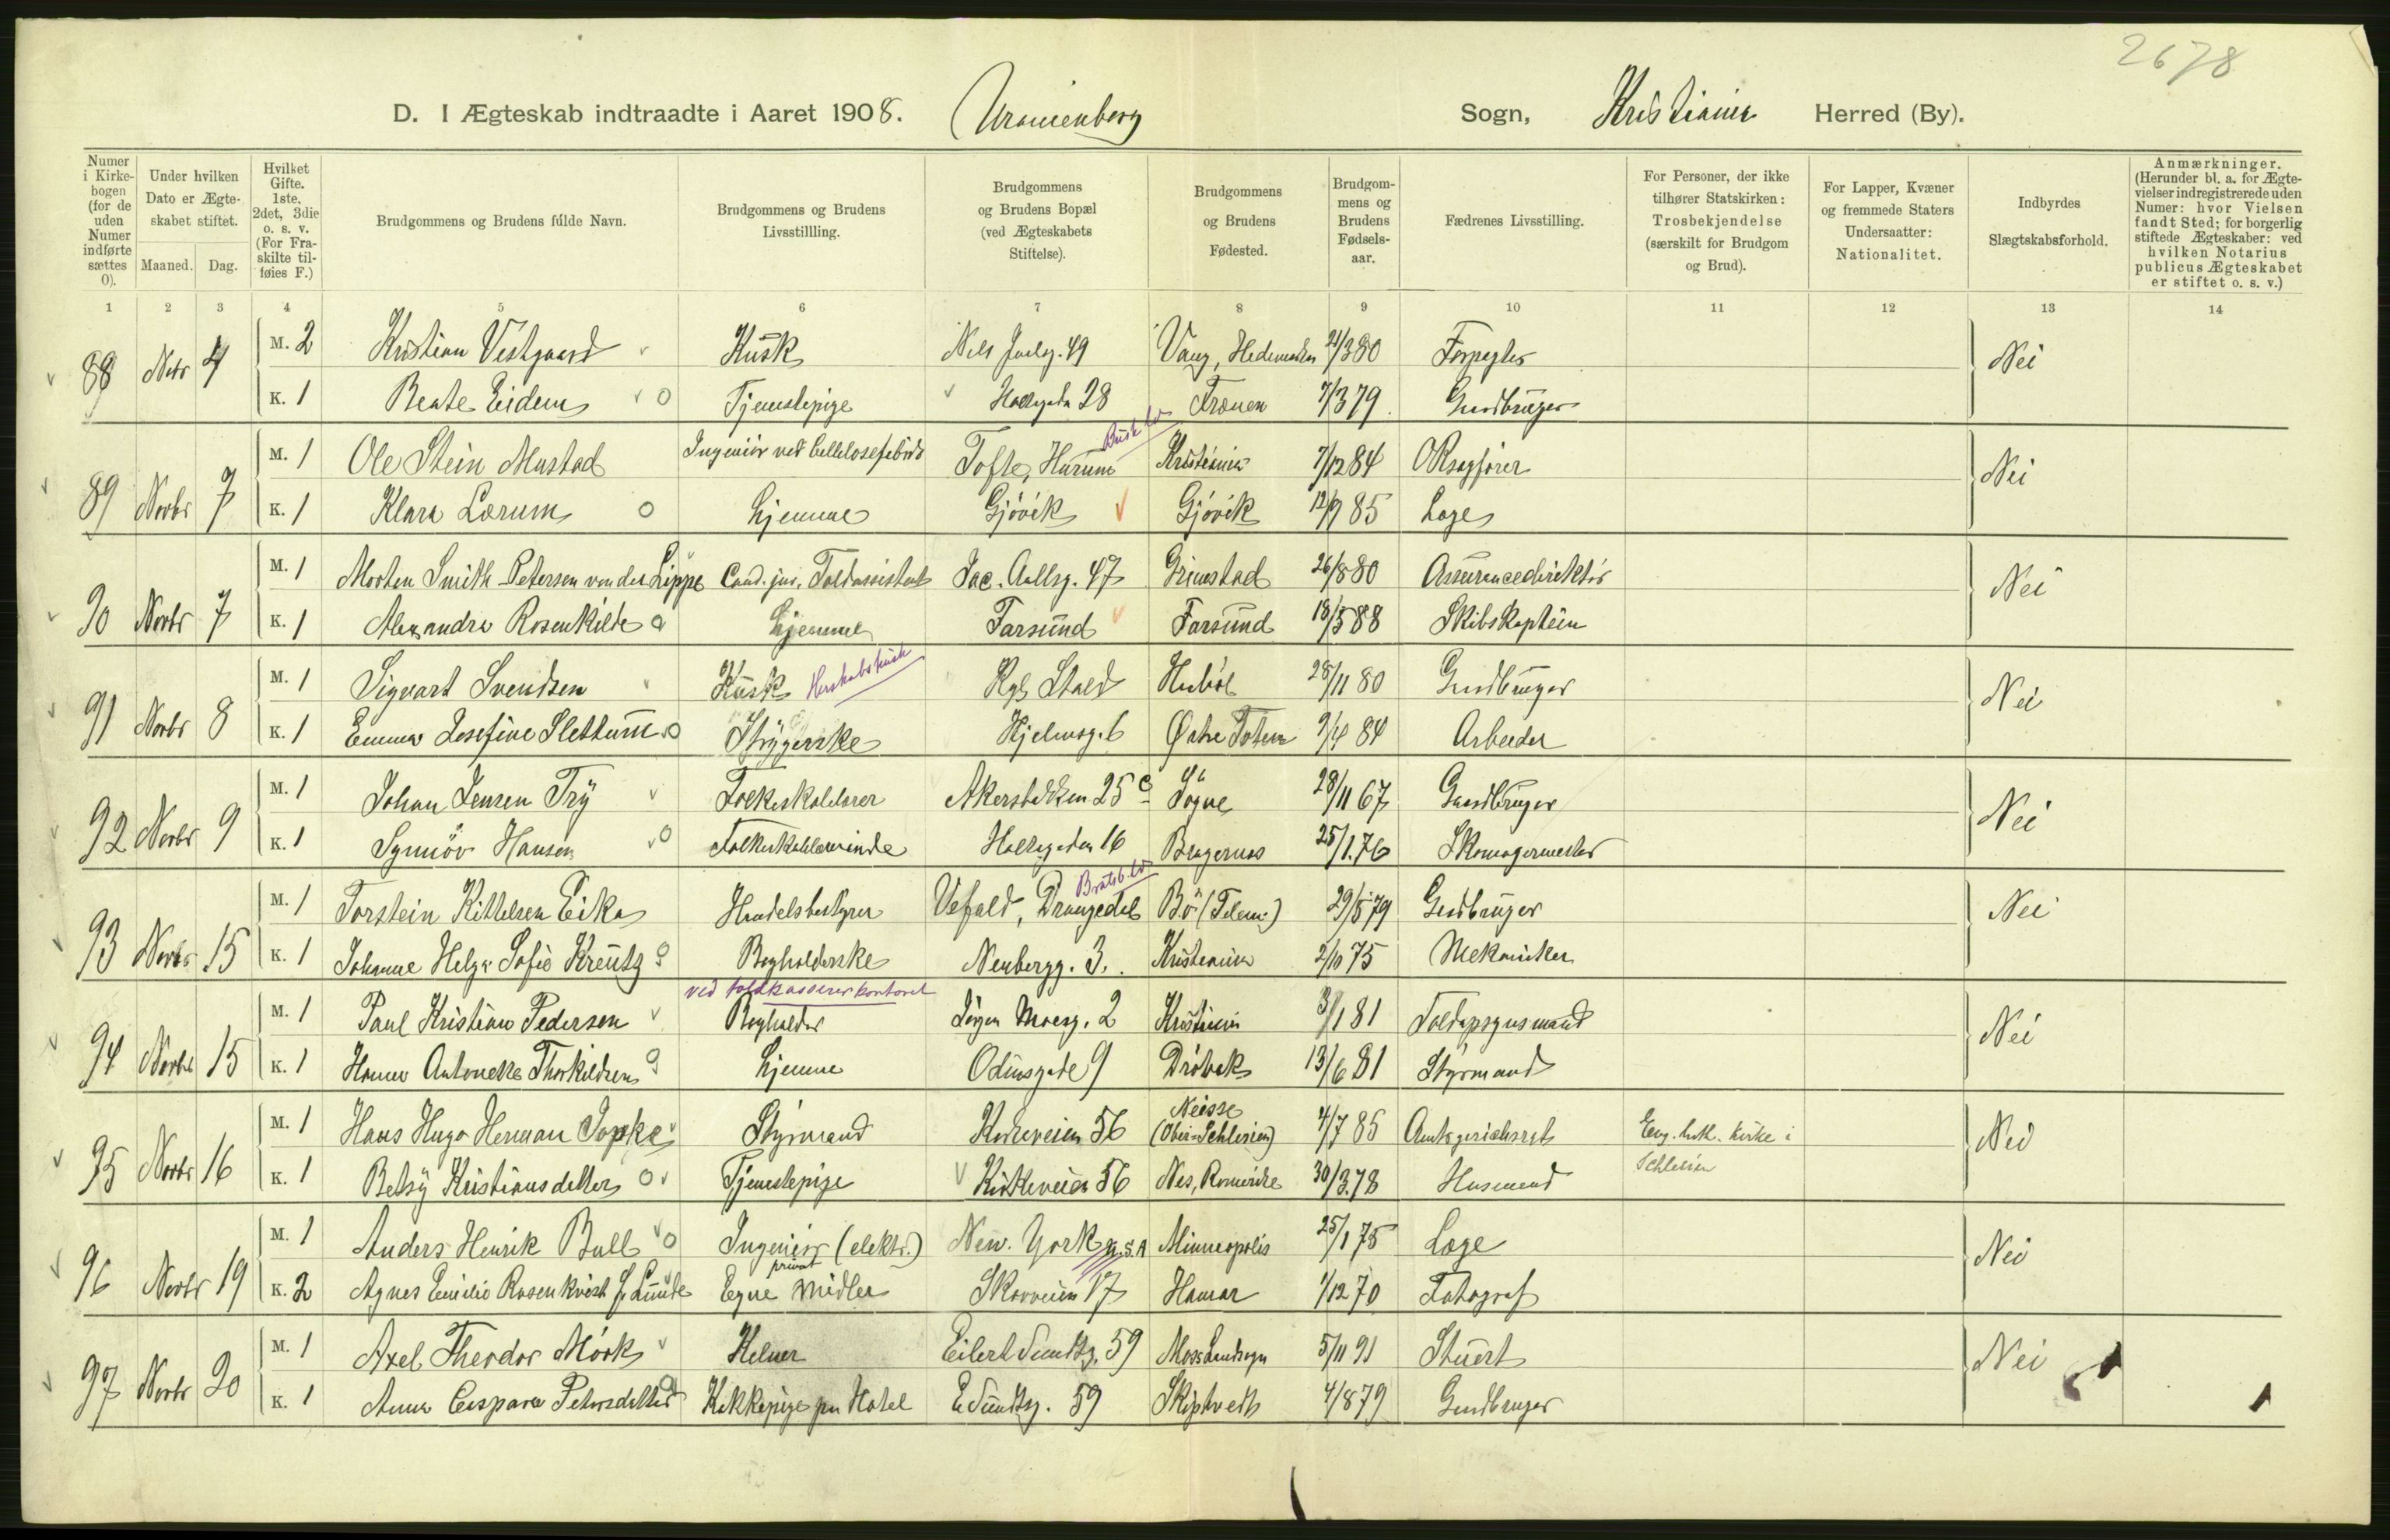 2678
D. I Ægteskab indtraadte i Aaret 1908. Uranienborg Sogn, Kristiania Herred (By).
Numer i Kirkebogen (for de uden Numer indførte sættes 0).
Under hvilken Dato er Ægteskabet stiftet.
Maaned. Dag.
Hvilket Gifte. 1ste, 2det, 3die o. s. v. (For Fraskilte tilføies F.)
Brudgommens og Brudens fulde Navn.
Brudgommens og Brudens Livsstillling.
Brudgommens og Brudens Bopæl (ved Ægteskabets Stiftelse).
Brudgommens og Brudens Fødested.
Brudgommens og Brudens Fødselsaar.
Fædrenes Livsstilling.
For Personer, der ikke tilhører Statskirken: Trosbekjendelse (særskilt for Brudgom og Brud).
For Lapper, Kvæner og fremmede Staters Undersaatter: Nationalitet.
Indbyrdes Slægtskabsforhold.
Anmærkninger. (Herunder bl. a. for Ægtevielser indregistrerede uden Numer: hvor Vielsen fandt Sted; for borgerlig stiftede Ægteskaber: ved hvilken Notarius publicus Ægteskabet er stiftet o. s. v.)
1 2 3 4 5 6 7 8 9 10 11 12 13 14
88 Nvbr 4 M. 2 Kristian Vestgaard Kusk Nels Juelsg. 49 Vang, Hedemarken 21/3 80 Nei
K. 1 Beate Eidem Tjenestepige Holtegata 28 7/3 79 Gardbruger
89 Novbr 7 M. 1 Ole Stein Mustad Ingeniør ved Cellelosefabrik Tofte, Hurum Busk. Kristiania 7/12 84 ORsagfører Nei
K. 1 Klara Lærum hjemme Gjøvik Gjøvik 12/9 85 Læge
90 Novbr 7 M. 1 Morten Smith Petersen von der Lippe Cand. jur. Toldassistent Jac. Aallsg. 47 Grimstad 26/8 80 Assurancedirektør Nei
K. 1 Alexandra Rosenkilde hjemme Farsund Farsund 18/5 88 Skibskaptein
91 Novbr 8 M. 1 Sigvart Svendsen Kusk Herskabskusk Kgl. Stald Hobøl 28/11 80 Gardbruger Nei
K. 1 Emma Josefine Slettum Strygerske Hjelmsg. 6 Østre Toten 9/4 84 Arbeider
92 Novbr 9 M. 1 Johan Jensen Try Folkeskolelærer Akersbakken 25 c Søgne 28/11 67 Gaardbruger Nei
K. 1 Synnøv Hansen Folkeskolelærerinde Holtegaden 16 Bragernes 25/1 76 Skomagermester
93 Novbr 15 M. 1 Torstein Kittelsen Eika Handelsbestyrer Vefald, Drangedal Bratsb. Bø (Telem.) 29/5 79 Gardbruger Nei
K. 1 Johanne Helga Sofie Kreutz Bogholderske Neubergg. 3. Kristiania 2/10 75 Mekaniker
94 Novbr 15 M. 1 Paul Kristian Pedersen ved toldkassererkontoret Bogholder Jørgen Moesg. 2 Kristiania 3/1 81 Toldopsynsmand Nei
K. 1 Hanna Antonette Thorkildsen hjemme Odinsgade 9 Drøbak 13/6 81 Styrmand
95 Novbr 16 M. 1 Hans Hugo Herman Sopke Styrmand Kirkeveien 56 Neisse (Ober-Schlesien) 4/7 85 Amtsgerichtsrat Evg. luth. Kirke i Schlesien Nei
K. 1 Betsy Kristiansdatter Tjenestepige Kirkeveien 56 Nes, Romerike 30/3 78 Husmand
96 Novbr 19 M. 1 Anders Henrik Bull Ingeniør (elektr.) New. York U.S.A Minneapolis 25/1 75 Læge Nei
K. 2 Agnes Emilie Rosenkvist f. Lunde Egne Midler privat Skovveien 17 Hamar 1/12 70 Fotograf
97 Novbr 20 M. 1 Axel Theodor Mørk Kelner Eilert Sundtsg. 59 Moss Landsogn 5/11 91 Stuert Nei
K. 1 Anna Caspara Petersdatter Kokkepige paa Hotel E. Sundtsg. 59 Skiptvedt 4/8 79 Gardbruger